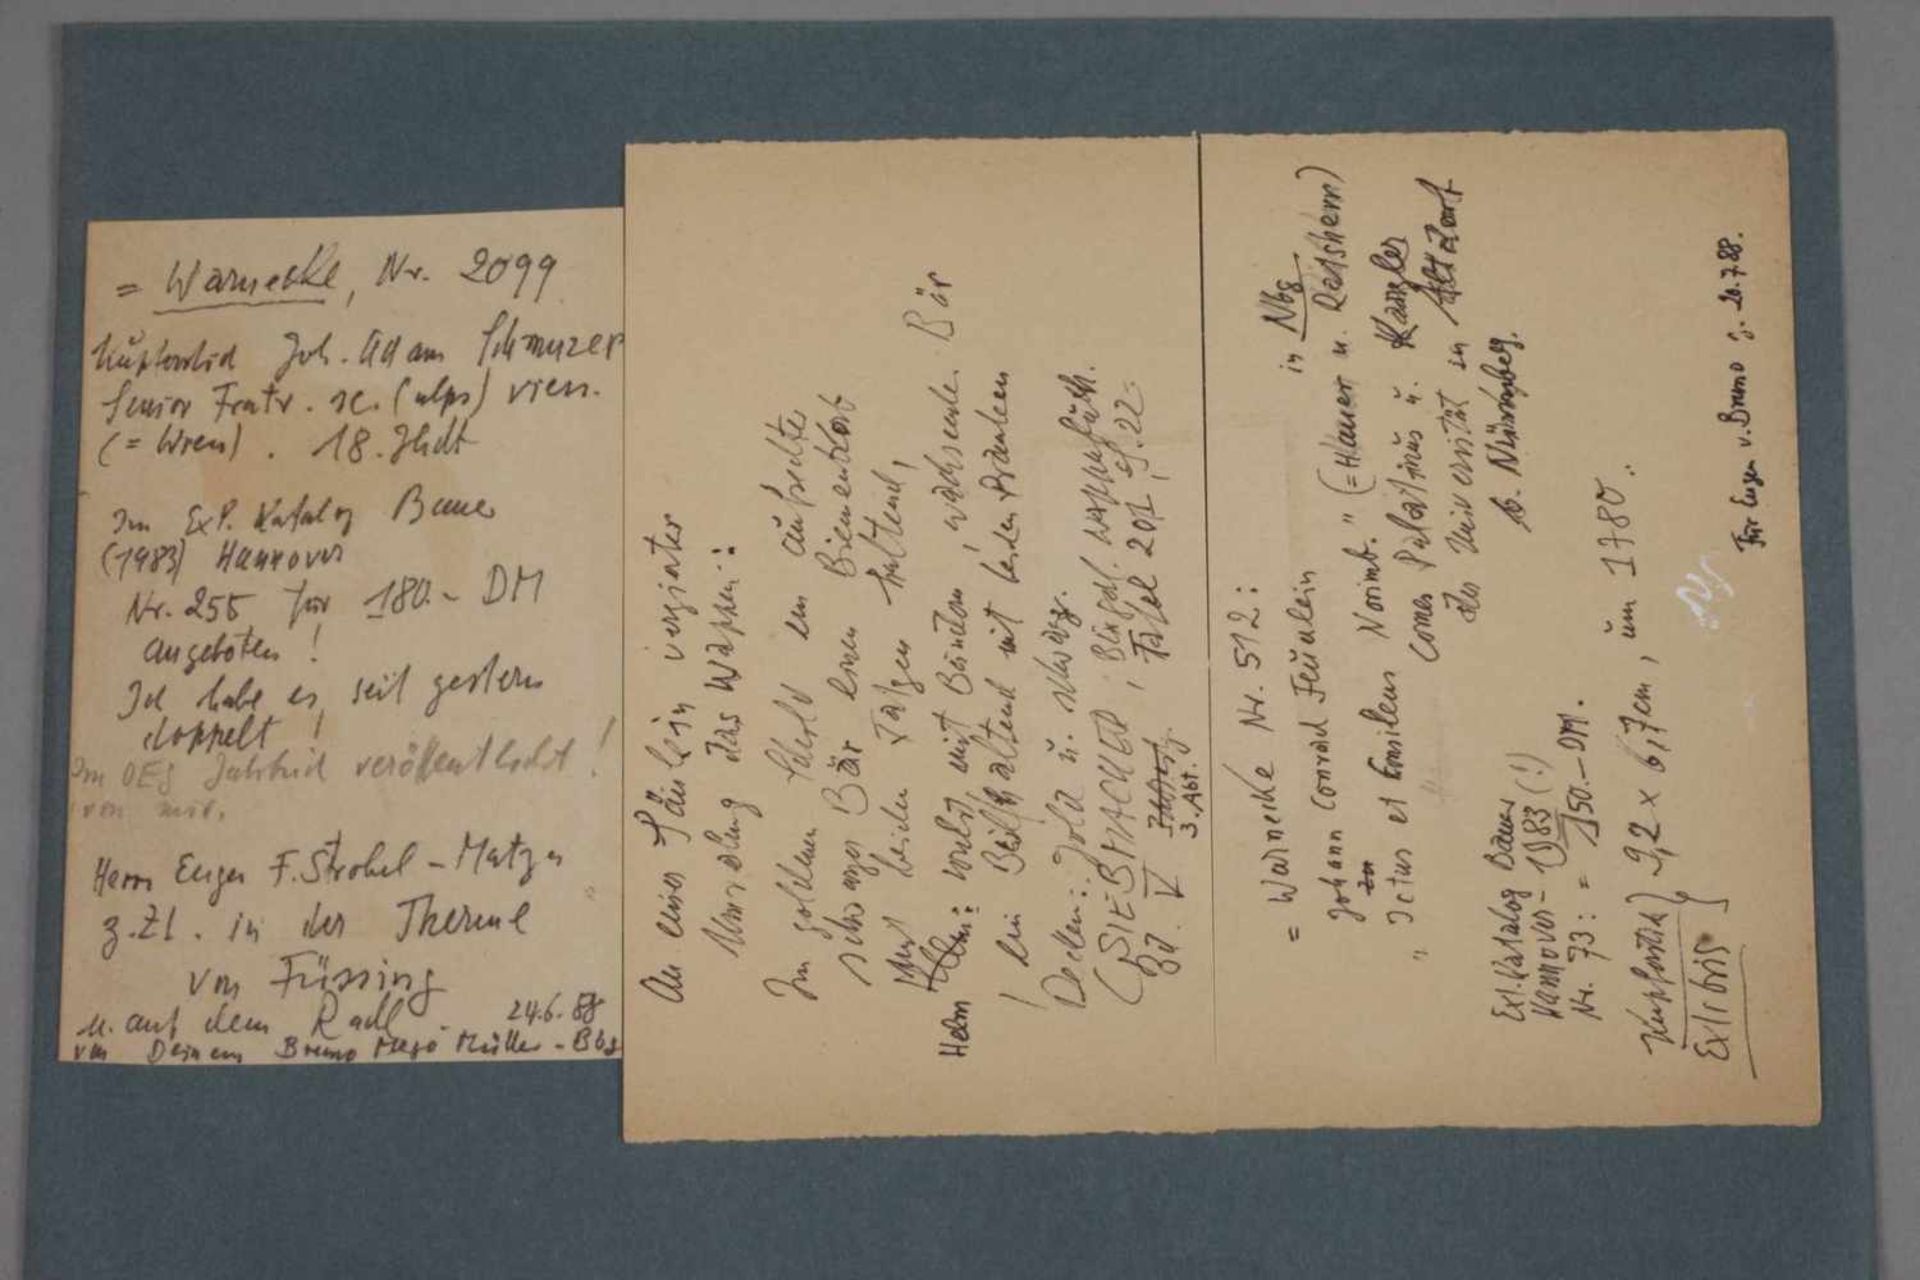 = Warnecke, Nr. 2099
Kupferstich Joh. Adam Schmuzer
Senior Fratr. sc. (ulps) vien.
(= Wien). 18. Jhdt
Im Exl. Katalog Bauer
(1983) Hannover
Nr. 255 für 180.- DM
angeboten!
Ich habe es seit gestern
doppelt!
Im OEG Jahrbuch veröffentlicht!
von mir.
Herrn Eugen F. Strobel-Matza
z.Zt. in der Therme
von Füssing
u. auf dem Radl. 24.6.88
von Deinem Bruno Müller-Bbg
An einer Säule ein verzierter
das Wappen:
Im goldenen Schild ein aufrechter
schwarzer Bär einen Bienenkorb
mit beiden Tatzen haltend,
Helm: Wulst mit Bändern, wachsende. Bär
ein Beil haltend mit beiden Pranken
Decken: Gold u. schwarz.
(SIEBMACHER, Bürgerl. Wappen
Bd. V 3. Abt. Tafel 201, S. 22
= Warnecke Nr. 512:
Johann Conrad Feuerlein in Nbg
"Ictus et Consilens Norimb." (= Hauer u. Ratsherr)
Comes Palatinus u. Kanzler
der Universität in Altdorf
b. Nürnberg.
Exl. Katalog Bauer
Hannover - 1983 (!)
Nr. 73: = 150.- DM.
Kupferstich 9,2 x 6,7 cm, um 1780.
Exlibris
Für Eugen v. Bruno z. 20.7.88.